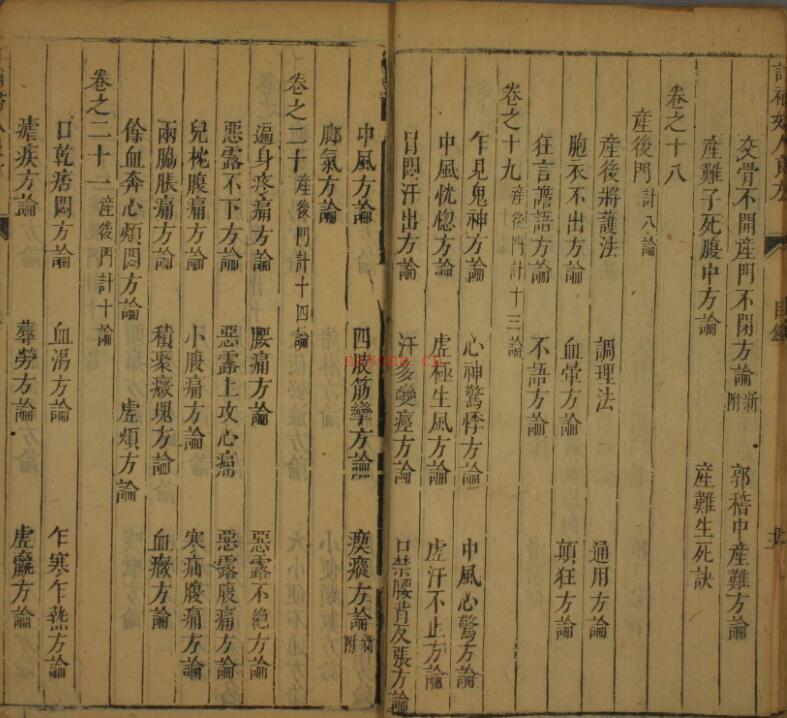 交骨不開產門不閉方論 新附 郭稽中產難方論
產難子死腹中方論 產難生死訣
卷之十八
產後門計八論
產後將護法 調理法 通用方論
胞衣不出方論 血暈方論 顛狂方論
狂言譫語方論 不語方論
卷之十九 產後門計十三論
乍見鬼神方論 心神驚悸方論 中風心驚方論
中風恍惚方論 虛極生風方論 虛汗不止方論
冒悶汗出方論 汗多變痙方論 口禁腰背反張方論
中風方論 四肢筋攣方論 瘈瘲方論 新附
腳氣方論
卷之二十 產後門計十四論
遍身疼痛方論 腰痛方論 惡露不絕方論
惡露不下方論 惡露上攻心痛 惡露腹痛方論
兒枕腹痛方論 小腹痛方論 寒疝腹痛方論
兩脇脹痛方論 積聚癥塊方論 血癥方論
餘血奔心煩悶方論 虛煩方論
卷之二十一 產後門計十論
口乾痞悶方論 血渴方論 乍寒乍熱方論
瘧疾方論 蓐勞方論 虛羸方論
目錄